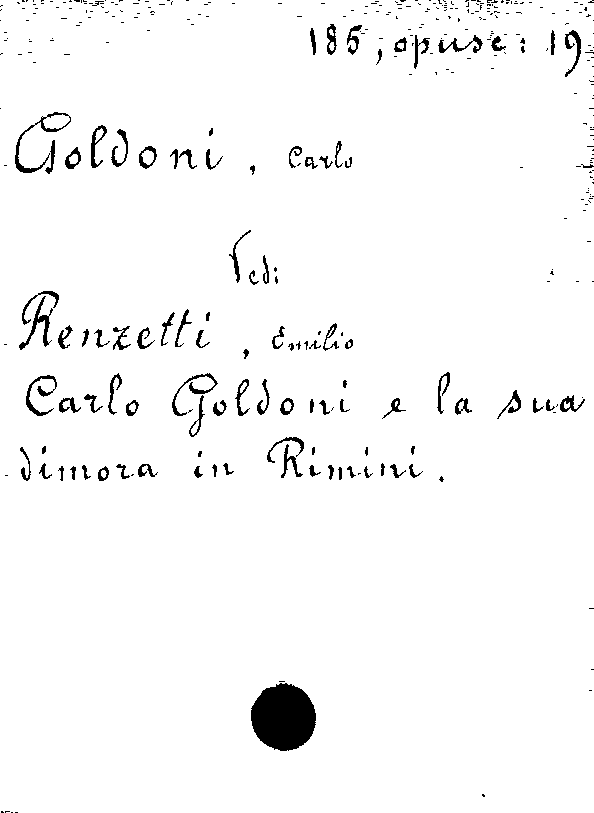 185, opusc: 19
Goldoni, Carlo
Vedi:
Renzetti, Emilio
Carlo Goldoni e la sua
dimora in Rimini.